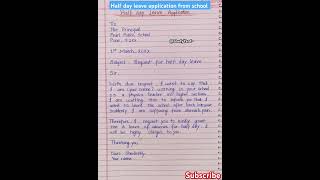 Half day leave application from school
Half day Leave Application
To
The Principal
Pearl Public School
Pune, 
1st March, 
Subject - Request for half day leave
Sir,
With due respect, I want to say that
I am your working in your school
as a physics teacher of higher section.
I am writing this to inform you that I
want to leave the school after because
suddenly I am suffering from stomach pain.
Therefore, I request you to kindly grant
me a leave of absence for half day. I
will be highly obliged to you.
Thanking you
Yours 
Your name
Subscribe